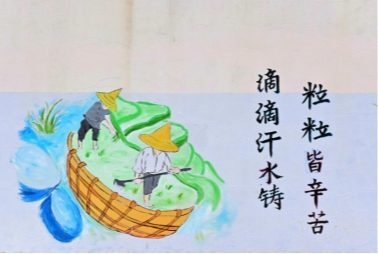 粒粒皆辛苦
滴滴汗水铸